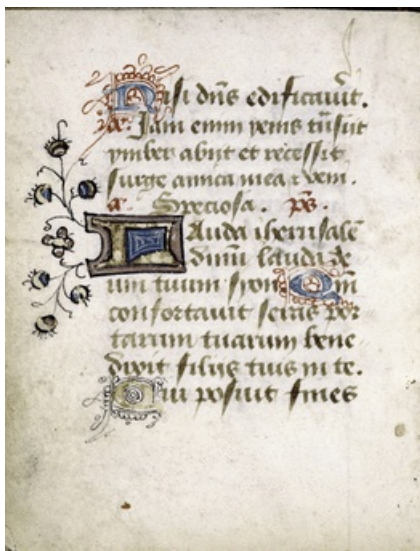 Nisi dn̄s edificauīt.
Jam enim yems trāsiit
ymber abijt et recessit
surge amica mea ⁊ veni.
a. Speciosa. ps̄.
Lauda iherusalē
dn̄m lauda de
um tuum syon Qm̄
confortauit seras por
tarum tuarum bene
dixit filijs tuis in te.
Qui posuit fines